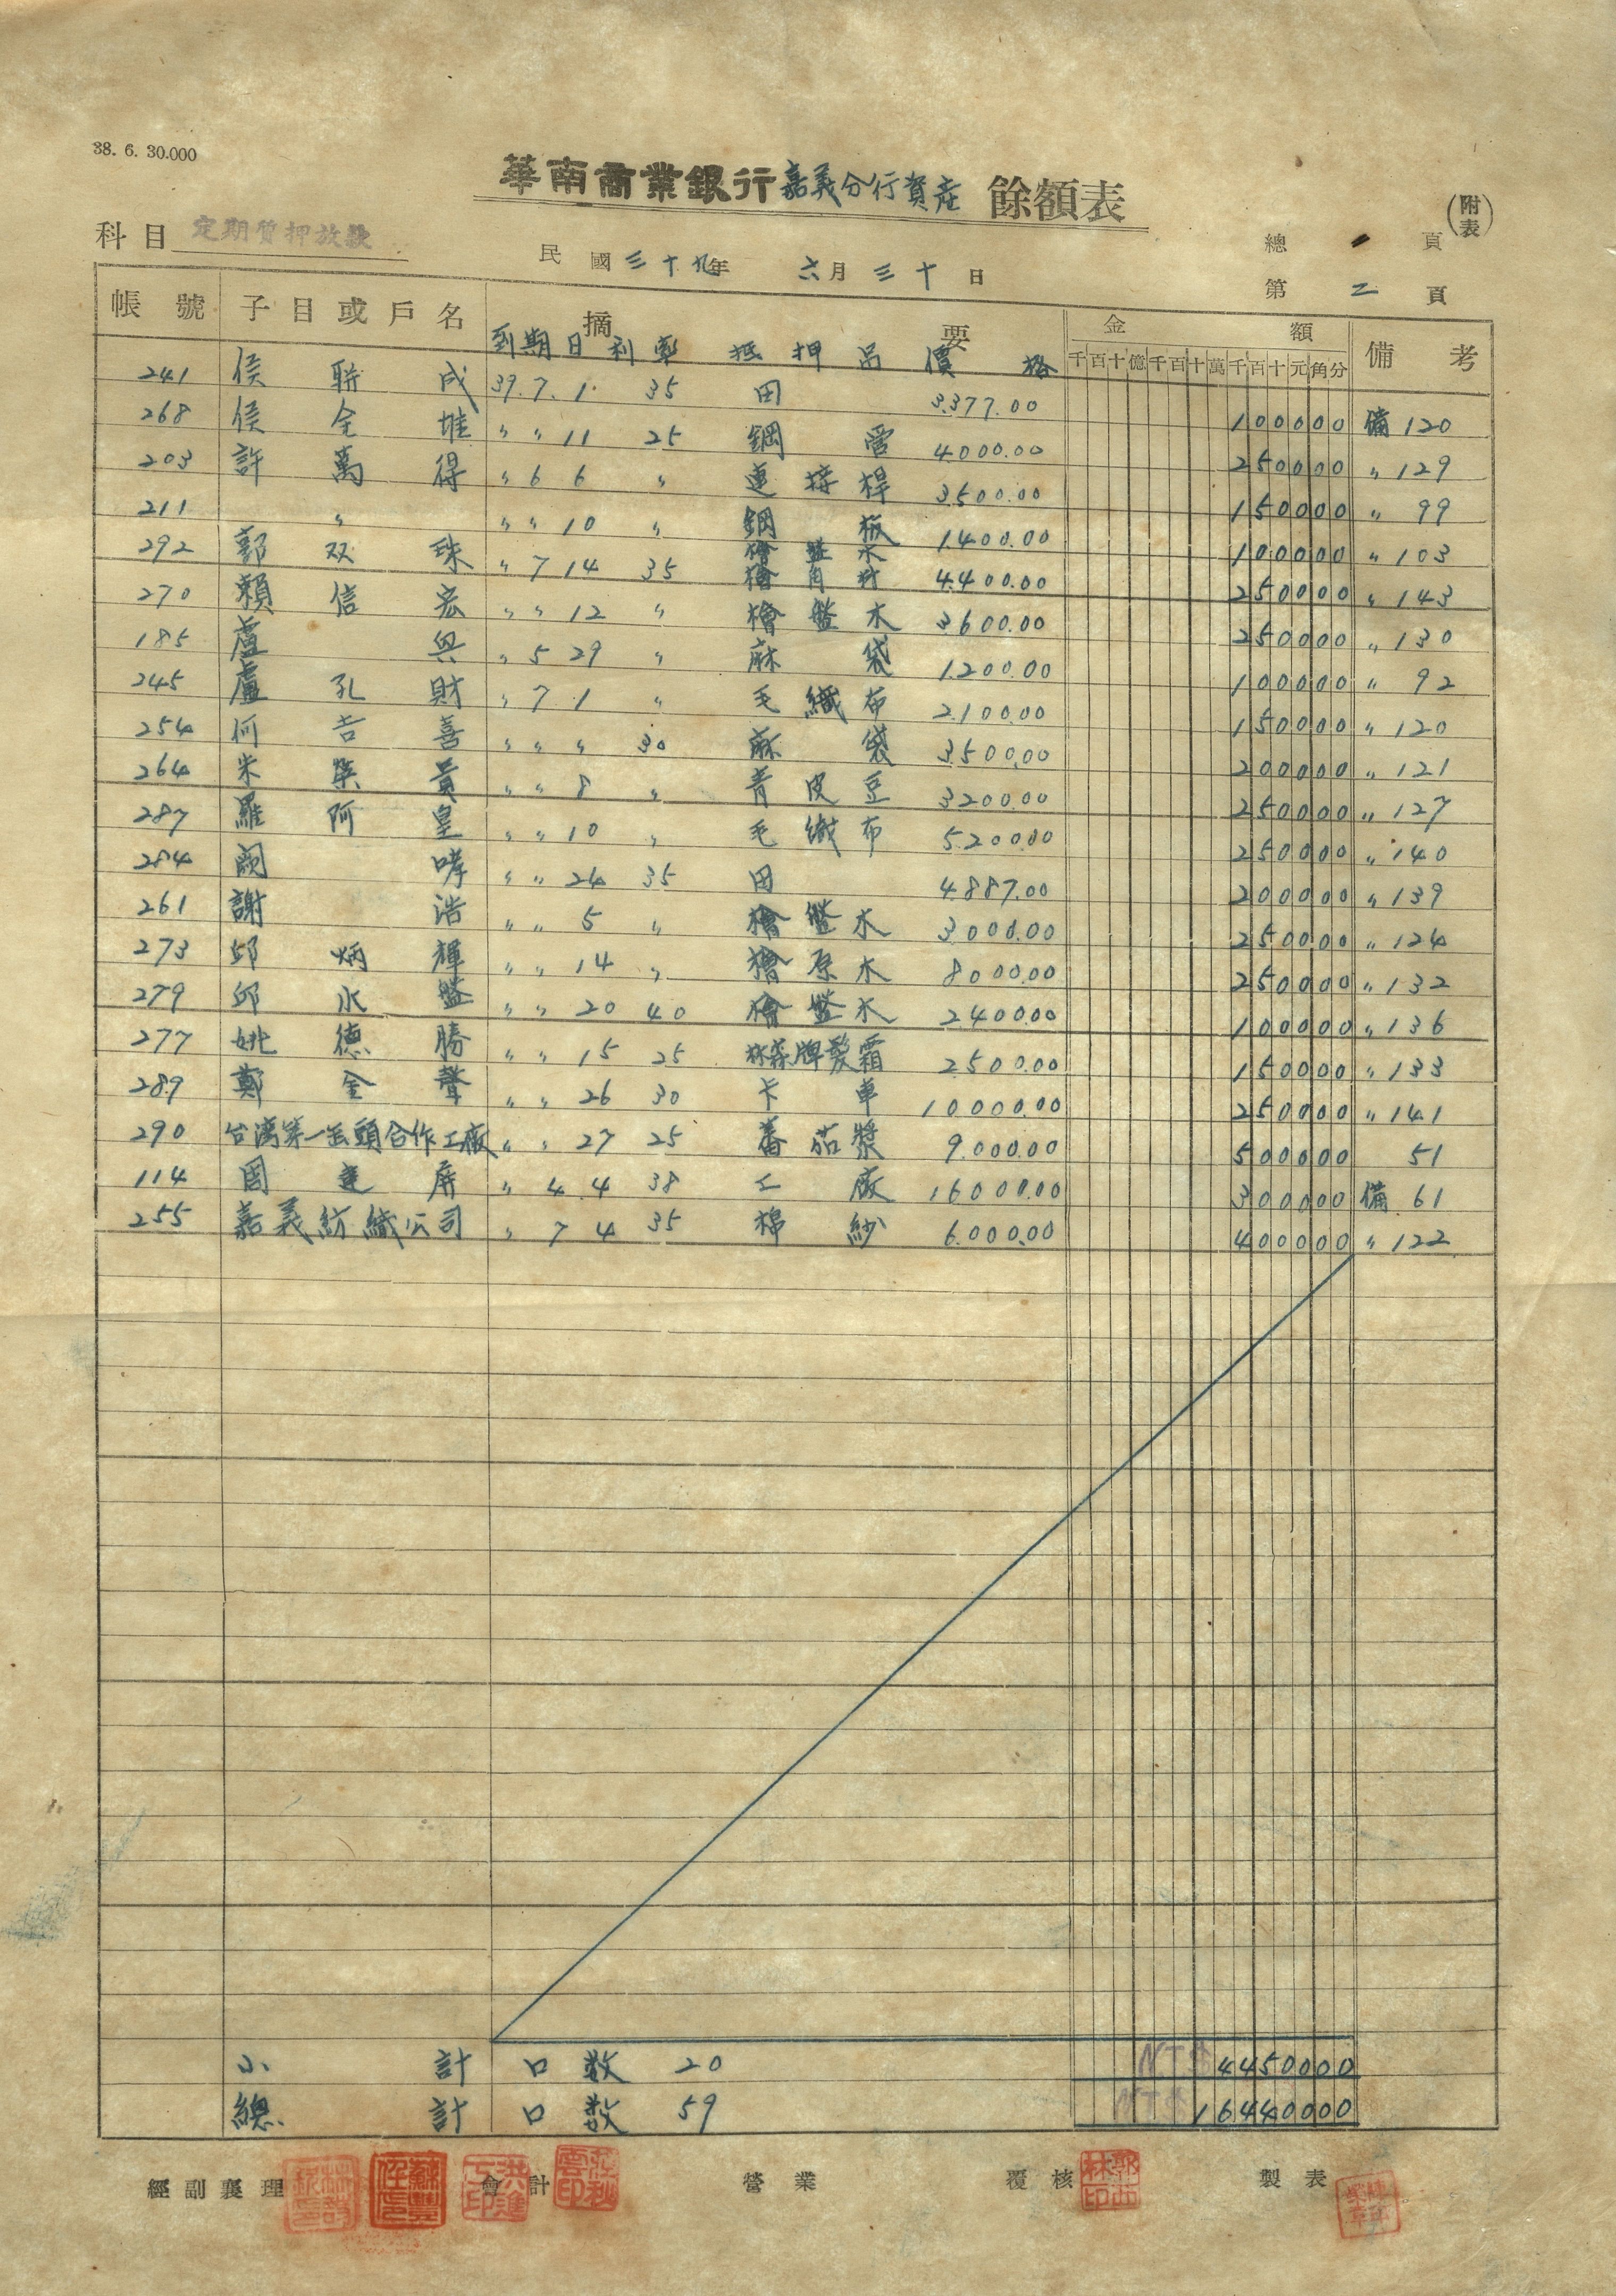 38. 6. 30.000
華南商業銀行嘉義分行資產 餘額表
(附表)
科目 定期質押放款
民國三十九年 六月三十日
總 1 頁
第 二 頁
帳號 子目或戶名 摘要 金額 備考
到期日 利率 抵押品 價格 千百十億千百十萬千百十元角分
241 侯聯成 39.7.1. 35 田 3.377.00 100000 備 120
268 侯全堆 〃 〃 11 25 鋼管 4.000.00 250000 〃 129
203 許萬得 〃 6 6 〃 連接桿 3.500.00 150000 〃 99
211 〃 〃 〃 10 〃 鋼板 1.400.00 100000 〃 103
292 郭双珠 〃 7 14 35 檜盤木 檜角材 4.400.00 250000 〃 143
270 賴信宏 〃 〃 12 〃 檜盤木 3.600.00 250000 〃 130
185 盧興 〃 5 29 〃 麻袋 1.200.00 100000 〃 92
245 盧孔財 〃 7 1 〃 毛織布 2.100.00 150000 〃 120
254 何吉善 〃 〃 〃 30 麻袋 3.500.00 200000 〃 121
264 朱貴 〃 〃 8 〃 青皮豆 3.200.00 250000 〃 127
287 羅阿皇 〃 〃 10 〃 毛織布 5.200.00 250000 〃 140
284 哮 〃 〃 24 35 田 4.887.00 200000 〃 139
261 謝浩 〃 〃 5 〃 檜盤木 3.000.00 250000 〃 124
273 邱炳輝 〃 〃 14 〃 檜原木 8.000.00 250000 〃 132
279 邱水盤 〃 〃 20 40 檜盤木 2.400.00 100000 〃 136
277 姚德勝 〃 〃 15 25 林森牌髮霜 2.500.00 150000 〃 133
289 鄭金聲 〃 〃 26 30 卡車 10.000.00 250000 〃 141
290 台湾第一缶頭合作工廠 〃 〃 27 25 蕃茄漿 9.000.00 500000 51
114 周達屏 〃 4 4 38 工廠 16.000.00 300000 備 61
255 嘉義紡織公司 〃 7 4 35 棉紗 6.000.00 400000 〃 122
小計 口数 20 NT$ 4450000
總計 口数 59 NT$ 16440000
經副襄理 會計 營業 覆核 製表